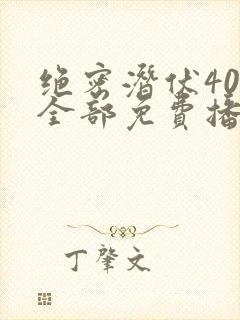 绝密潜伏40
全部免费播
丁肇文